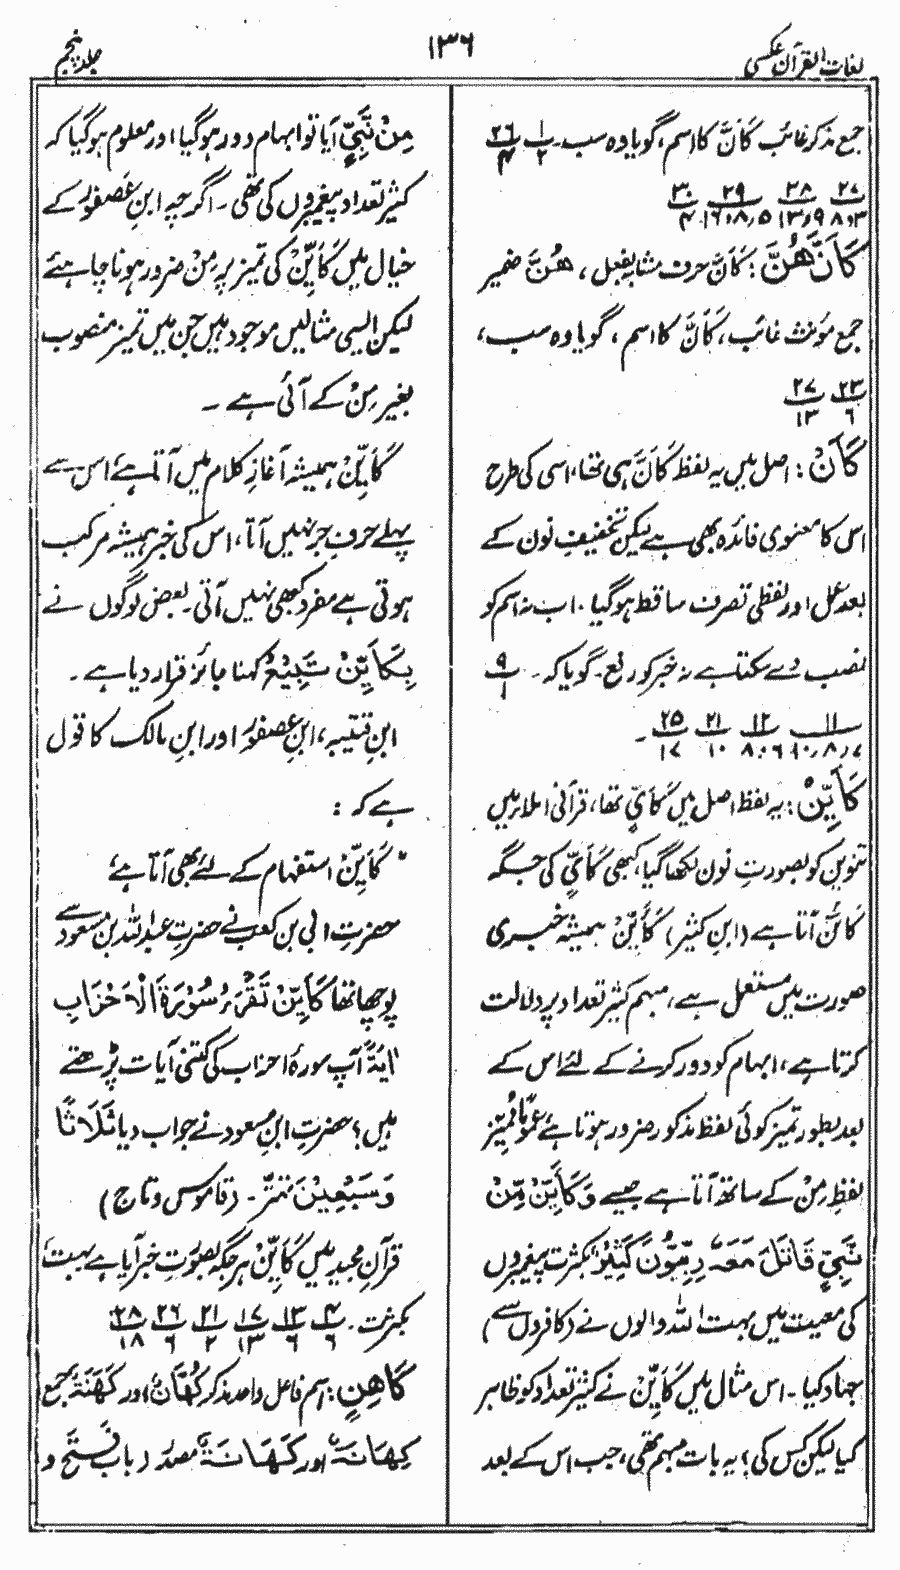 لغات القرآن عکسی
۱۳۶
جلد پنجم
جمع مذکر غائب کَاَنَّ کا اسم، گویا وہ سب۔ ۱/۲ ۲۶/۴
۲۷/۸،۳ ۲۸/۱۳،۹ ۲۹/۱۶،۸،۵ ۳۰/۴
کَاَنَّهُنَّ: کَاَنَّ حرف مشابہ بفعل، هُنَّ ضمیر
جمع مؤنث غائب، کَاَنَّ کا اسم، گویا وہ سب،
۲۳/۶ ۲۷/۱۳
کَاَنْ: اصل میں یہ لفظ کَاَنَّ ہی تھا، اسی کی طرح
اس کا معنوی فائدہ بھی ہے لیکن تخفیفِ نون کے
بعد عمل اور لفظی تصرف ساقط ہوگیا۔ اب نہ اسم کو
نصب دے سکتا ہے نہ خبر کو رفع۔ گویا کہ۔ ۹/۱
۱۱/۱۰،۸،۷ ۱۲/۸،۶ ۲۱/۱۰ ۲۵/۱۷ ۔
کَاَیِّنْ: یہ لفظ اصل میں کَاَیٍّ تھا، قرآنی املاء میں
تنوین کو بصورتِ نون لکھا گیا، کبھی کَاَیٍّ کی جگہ
کَائِنْ آتا ہے (ابنِ کثیر) کَاَیِّنْ ہمیشہ خبری
صورت میں مستعمل ہے، مبہم کثیر تعداد پر دلالت
کرتا ہے، ابہام کو دور کرنے کے لئے اس کے
بعد بطور تمیز کوئی لفظ مذکور ضرور ہوتا ہے عموماً تمیز
لفظِ مِنْ کے ساتھ آتا ہے جیسے وَکَاَیِّنْ مِّنْ
نَّبِیٍّ قَاتَلَ مَعَهٗ رِبِّیُّوْنَ کَثِیْرٌ بکثرت پیغمبروں
کی معیت میں بہت اللہ والوں نے (کافروں سے)
جہاد کیا۔ اس مثال میں کَاَیِّنْ نے کثیر تعداد کو ظاہر
کیا لیکن کس کی؟ یہ بات مبہم تھی، جب اس کے بعد
مِنْ نَّبِیٍّ آیا تو ابہام دور ہوگیا اور معلوم ہوگیا کہ
کثیر تعداد پیغمبروں کی تھی۔ اگرچہ ابنِ عصفور کے
خیال میں کَاَیِّنْ کی تمیز پر مِنْ ضرور ہونا چاہئے
لیکن ایسی مثالیں موجود ہیں جن میں تمیز منصوب
بغیر مِنْ کے آئی ہے ۔
کَاَیِّنْ ہمیشہ آغازِ کلام میں آتا ہے اس سے
پہلے حرفِ جر نہیں آتا، اس کی خبر ہمیشہ مرکب
ہوتی ہے مفرد کبھی نہیں آتی۔ بعض لوگوں نے
بِکَاَیِّنْ تَبِیْعُ کہنا جائز قرار دیا ہے۔
ابنِ قتیبہ، ابنِ عصفور اور ابنِ مالک کا قول
ہے کہ :
" کَاَیِّنْ استفہام کے لئے بھی آتا ہے
حضرتِ ابی بن کعب نے حضرتِ عبداللہ بن مسعود سے
پوچھا تھا کَاَیِّنْ تَقْرَءُ سُوْرَةَ الْاَحْزَابِ
اٰیَةً آپ سورۂ احزاب کی کتنی آیات پڑھتے
ہیں؟ حضرتِ ابنِ مسعود نے جواب دیا ثَلَاثًا
وَسَبْعِیْنَ تہتر۔ (قاموس و تاج)
قرآن مجید میں کَاَیِّنْ ہر جگہ بصورتِ خبر آیا ہے بہت،
بکثرت۔ ۴/۶ ۱۳/۶ ۱۷/۱۳ ۲۱/۲ ۲۶/۶ ۲۸/۱۸
کَاهِنٍ: اسم فاعل واحد مذکر کُهَّانٌ اور کَهَنَةٌ جمع
کِهَانَةٌ اور کَهَانَةٌ مصدر (باب فَتَحَ و